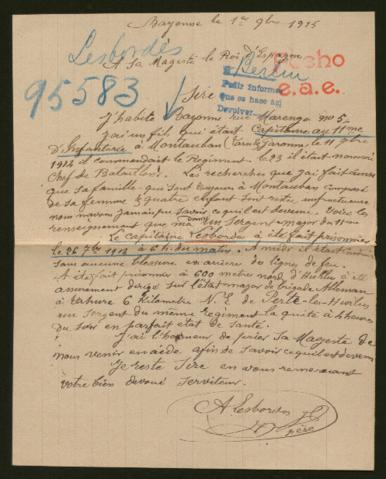 Bayonne le 1er 9bre 1915
Lesbordes
A Sa Majesté le Roi d'Espagne
Fecho
e.a.e.
Berlin
95583
Sire
Pedir Informes
que se hace asi
Devolver
J'habite Bayonne rue Marengo no 5
j'ai un fils qui était Capitaine au 11me
D'Infanterie à Montauban Tarn & Garonne le
1914 il commandait le Régiment le 23 il était nommé
Chef de Bataillon. Les recherches que j'ai fait
que sa famille que sont à Montauban composé
de sa femme & quatre enfant sont resté infructueuse
nous navons jamais pu savoir ce quil est devenu. Voici les
renseignement que ma donné un Sergent major du 11me
Le Capitaine Lesbordes à été fait prisonnier
le 26 7bre 1914 à 6 h. du matin. A midi il était
sans aucune blessure en arrière de ligne de feu
A été fait prisonier à 600 metre nord d'Hurlus à été
assurement dirigé sur l'état major de brigade Alleman
à Tahure 6 Kilometre N. E. de Perthe-les-Hurlus
un Sergent du même regiment la quité à 4 heure
du soir en parfait état de santé.
J'ai l'honneur de prier Sa Majesté de
nous venir en aide afin de savoir ce quil est devenu
Je reste Sire en vous remerciant
votre bien devoué Serviteur.
A Lesbordes
père